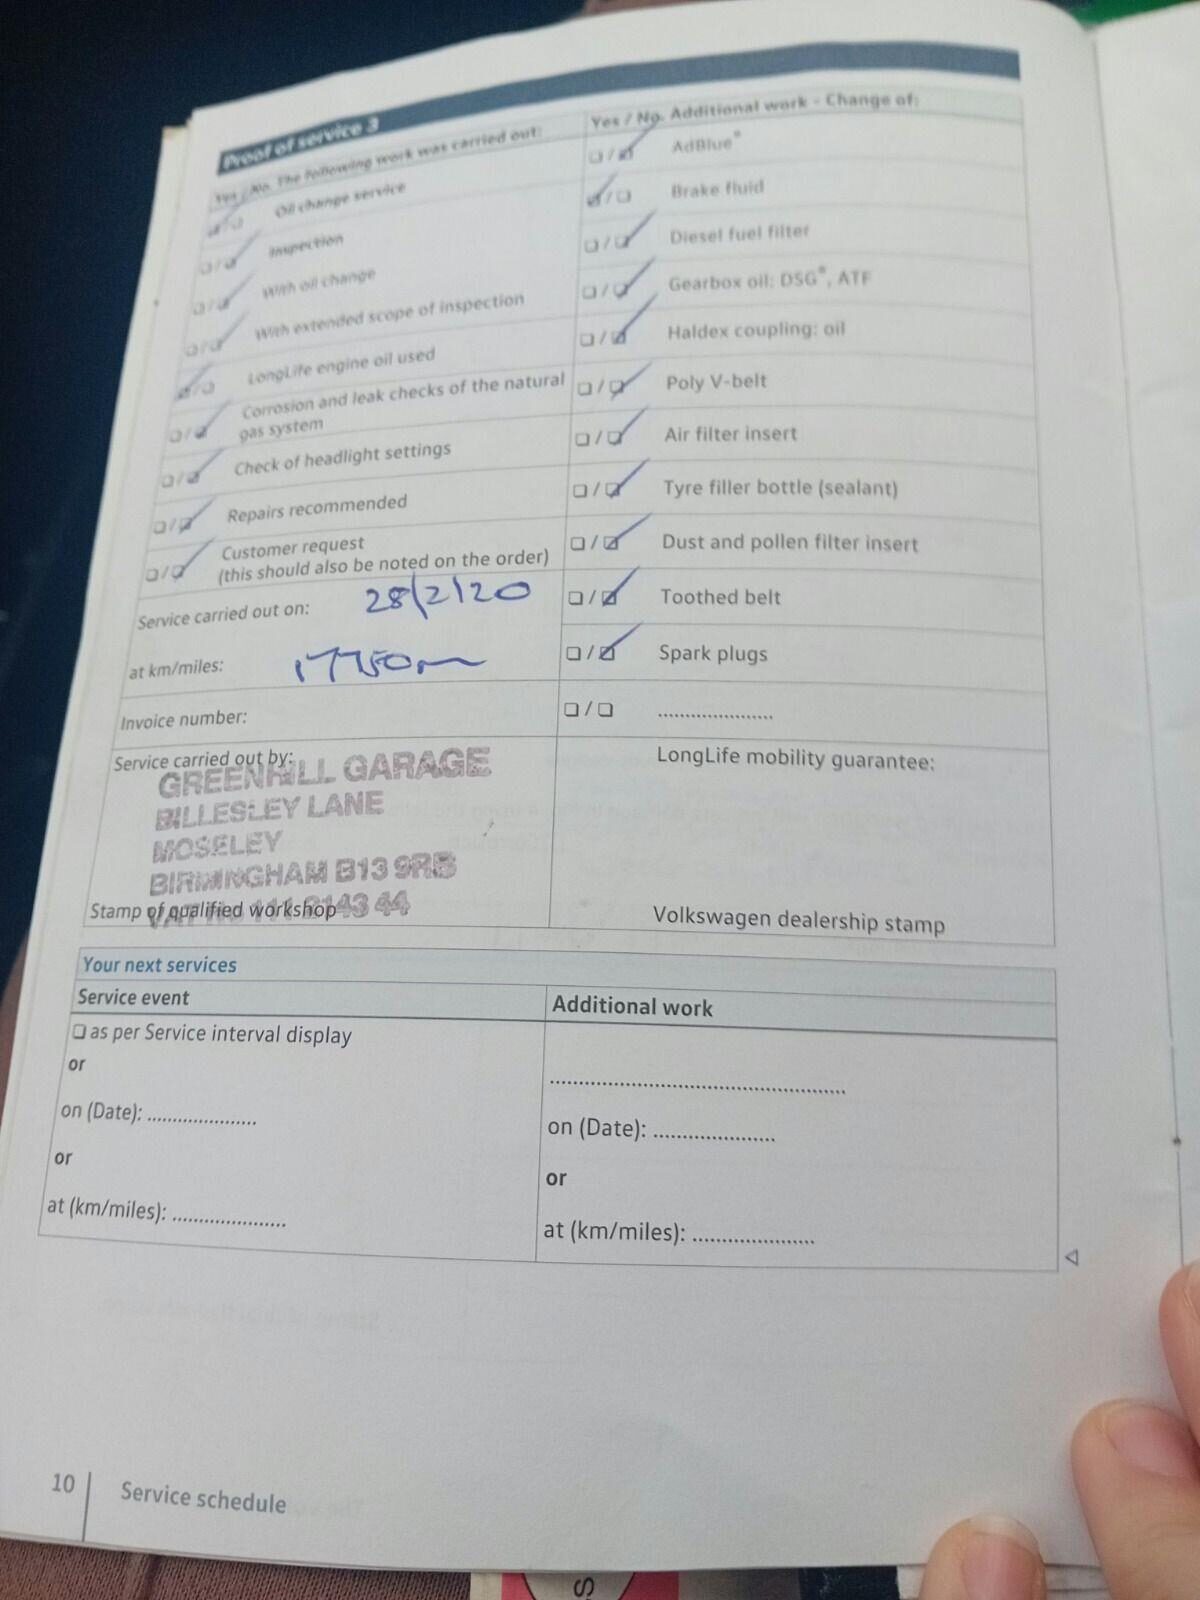 Proof of service 3
Yes / No. The following work was carried out:
☑/☐ Oil change service
☐/☑ Inspection
☐/☑ With oil change
☐/☑ With extended scope of inspection
☑/☐ LongLife engine oil used
☐/☑ Corrosion and leak checks of the natural
gas system
☐/☑ Check of headlight settings
☐/☑ Repairs recommended
☐/☑ Customer request
(this should also be noted on the order)
Service carried out on: 28/2/20
at km/miles: 17750m
Invoice number:
Service carried out by:
GREENHILL GARAGE
BILLESLEY LANE
MOSELEY
BIRMINGHAM B13 9RB
VAT No 111 2143 44
Stamp of qualified workshop
Yes / No. Additional work - Change of:
☐/☑ AdBlue®
☑/☐ Brake fluid
☐/☑ Diesel fuel filter
☐/☑ Gearbox oil: DSG®, ATF
☐/☑ Haldex coupling: oil
☐/☑ Poly V-belt
☐/☑ Air filter insert
☐/☑ Tyre filler bottle (sealant)
☐/☑ Dust and pollen filter insert
☐/☑ Toothed belt
☐/☑ Spark plugs
☐/☐ ......................
LongLife mobility guarantee:
Volkswagen dealership stamp
Your next services
Service event
☐ as per Service interval display
or
on (Date): .....................
or
at (km/miles): .....................
Additional work
.....................................................
on (Date): ......................
or
at (km/miles): ......................
10
Service schedule
S